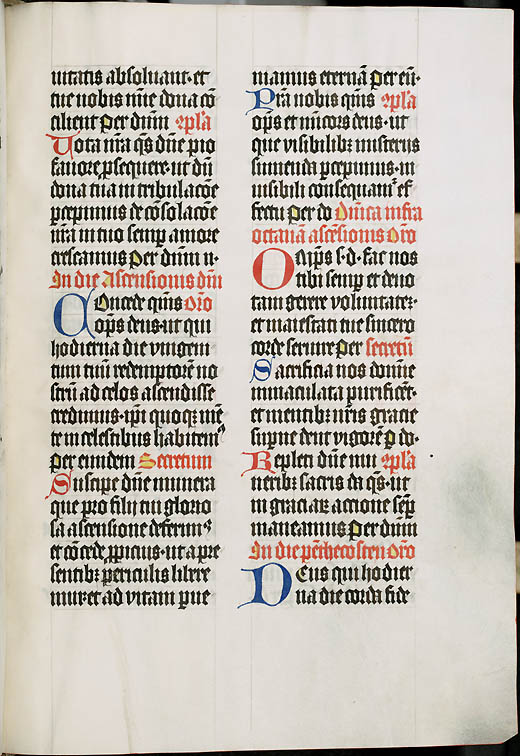 uitatis absoluant· et
tue nobis iug̃e dona cõ
cilient per dñm ep̃la
Uota nr̃a q̃s dñe pio
fauore ꝓsequere· ut dũ
dona tua in tribulacõe
ꝑcepimus de cõsolacõe
nr̃a in tuo semꝑ amore
crescamus Per dñm n·
In die Ascensionis dñi
COncede q̃ms Or̃o
op̃s deus· ut qui
hodierna die vnigeni
tum tuũ redemptorẽ no
strũ ad celos ascendisse
credimus· ip̃i quoqꝫ mẽ
te in celestibus habitemꝰ
Per eundem Secretum
Suscipe dñe munera
que pro filij tui glorio
sa ascensione deferimꝰ
et cõcede ꝓpicius· ut a pre
sentibꝫ ꝑericulis libere
mur et ad vitam ꝑue
niamus eternã Per eũ·
Pr̃a nobis q̃ms ep̃la
op̃s et mĩcors deus· ut
que visibilibꝫ misterijs
sumenda ꝑcepimus· in
uisibili consequamꝰ ef
fectu Per do Dñica infra
octauã ascẽsionis Or̃o
Om̃ps s· d· fac nos
tibi semꝑ et deuo
tam gerere voluntatẽ·
et maiestati tue sincero
corde seruire Per secretũ
Sacrificia nos domine
inmaculata purificẽt·
et mentibꝫ nr̃is gracie
suꝑne dent vigorẽ P do·
Repleti dñe mu ep̃la
neribꝫ sacris da q̃s· ut
in graciaꝝ accione sẽꝑ
maneamus Per dñm
In die pẽthecosten Or̃o
DEus qui hodier
na die corda fide